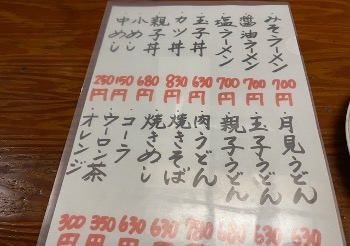 みそラーメン 700円
醤油ラーメン 700円
塩ラーメン 700円
玉子丼 630円
カツ丼 830円
親子丼 680円
小めし 150円
中めし 250円
月見うどん 630
玉子うどん 630
親子うどん 680
肉うどん 730
焼きそば 630
焼きめし 630
コーラ
ウーロン茶 350円
オレンジ 300円